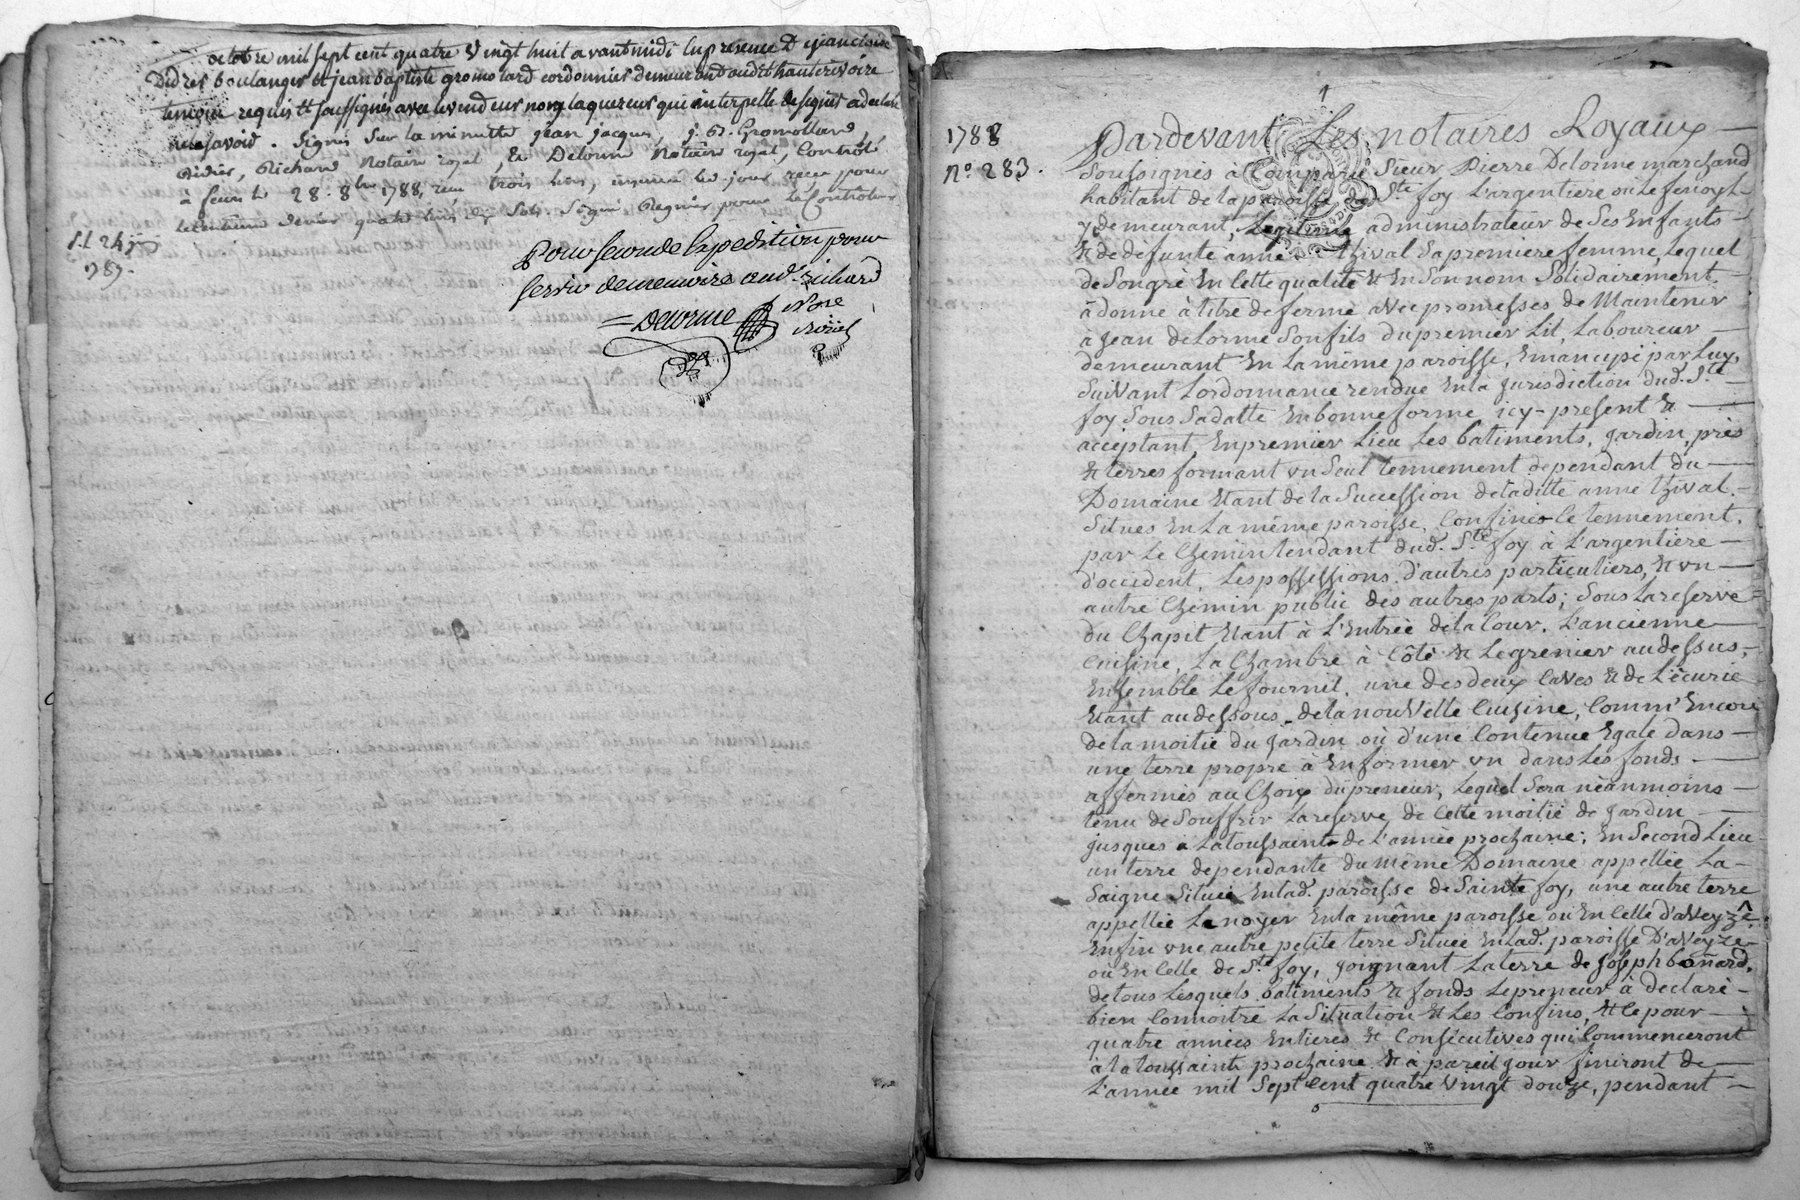 octobre mil sept cent quatre & vingt huit avant midi En presence De jean claude
Didier boulanger et jean baptiste gromolard cordonnier demeurant audit hauterivoire
temoins requis et soussignés avec le vendeur non l'aquereur qui interpellé de signer a declaré
ne savoir. Signés Sur la minutte jean jacques, j. B. Gromollard,
Didier, Richard Notaire royal, & Delorme Notaire royal, Controlé
à feurs le 28. 8bre 1788, reçu trois livres, insinué led jour reçu pour
le centieme denier quatre livres dix Sols. Signé Pagnier pour le Controleur
1787.
Pour seconde Expedition pour
servir de memoire aud. Richard
= Delorme Nore
1788
n.° 283.
1
Pardevant Les notaires Royaux
Soussignés à Comparu Sieur Pierre Delorme marchand
habitant de la paroisse de Ste foy L'argentiere ou Le fenoyl
y demeurant, Legitime administrateur de Ses Enfants
& de défunte anne thival Sa premiere femme, Lequel
de Son gré En Cette qualité & En Son nom Solidairement
à donné à titre de ferme avec promesses de Maintenir
à Jean delorme Son fils du premier Lit, Laboureur
demeurant En La même paroisse, Emancipé par Luy,
Suivant L'ordonnance rendue En la Jurisdiction dud. Ste
foy Sous Sa datte En bonne forme, icy-present &
acceptant, En premier Lieu Les batiments, Jardin, prés
& terres formant un Seul tennement dependant du
Domaine Etant de la Succession de la ditte anne thival.
Situés En La même paroisse, Confiné Le tennement,
par Le Chemin tendant dud. Ste foy à L'argentiere
d'occident, Les possessions d'autres particuliers, & un
autre Chemin public des autres parts; Sous La reserve
du Chapit Etant à L'Entrée de la Cour. L'ancienne
Cuisine, La Chambre à Côté & Le grenier au dessus,
Ensemble Le fournil, une des deux Caves & de L'écurie
Etant au dessous de la nouvelle Cuisine, Comm' Encore
de la moitié du Jardin ou d'une Contenue Egale dans
une terre propre à En former un dans Les fonds
affermés au Choix du preneur, Lequel Sera néanmoins
tenu de Souffrir La reserve de Cette moitié de Jardin
jusques à La toussaint de L'année prochaine; En Second Lieu
un terre dependante du même Domaine appellée La
Saigne Située En Lad. paroisse de Sainte foy, une autre terre
appellée Le noyer En la même paroisse ou En Celle d'aveyzé,
Enfin une autre petite terre Située En Lad. paroisse D'aveyzé
ou En Celle de Ste foy, joignant La terre de Joseph bonard.
de tous Lesquels batiments & fonds Le preneur à declaré
bien Connoitre La Situation & Les Confins, & Ce pour
quatre années Entieres & Consécutives qui Commenceront
à la toussaint prochaine & à pareil jour finiront de
L'année mil Sept Cent quatre vingt douze, pendant